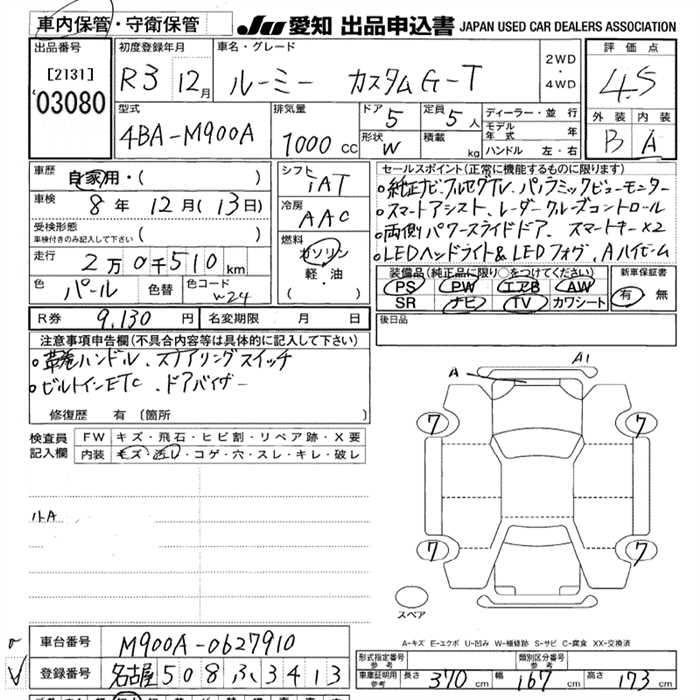 車内保管・守衛保管
JU 愛知 出品申込書 JAPAN USED CAR DEALERS ASSOCIATION
出品番号
[2131]
03080
初度登録年月
R3 12月
車名・グレード
ルーミー カスタムG-T
2WD
・
4WD
評価点
4.5
外装 内装
B A
型式
4BA-M900A
排気量
1000cc
ドア 5
定員 5人
形状 W
積載 kg
ディーラー・並行
モデル年式 年
ハンドル 左・右
車歴
自家用・( )
車検
8年 12月(13日)
受検形態
車検付きのみ記入して下さい ( )
走行
2万0千510km
色 パール
色替
色コード W24
シフト
IAT
冷房
AAC
燃料
ガソリン
軽・油
( )
セールスポイント(正常に機能するものに限ります)
○純正ナビ、フルセグTV、パノラミックビューモニター
○スマートアシスト、レーダークルーズコントロール
○両側パワースライドドア、スマートキー×2
○LEDヘッドライト&LEDフォグ、Aハイビーム
装備品(純正品に限り○をつけてください)
PS PW エアB AW
SR ナビ TV カワシート
新車保証書
有・無
R券 9,130円
名変期限 月 日
後日品
注意事項申告欄(不具合内容等は具体的に記入して下さい)
○革巻ハンドル、ステアリングスイッチ
○ビルトインETC、ドアバイザー
修復歴 有 〔箇所 〕
検査員
記入欄
FW キズ・飛石・ヒビ割・リペア跡・X要
内装 キズ・汚レ・コゲ・穴・スレ・キレ・破レ
ルA
A
A1
7 7
7 7
スペア
A-キズ E-エクボ U-凹み W-補修跡 S-サビ C-腐食 XX-交換済
車台番号 M900A-0627910
登録番号 名古屋 508 ふ 3413
形式指定番号
参考
類別区分番号
参考
車庫証明用
参考
長さ 370cm
幅 167cm
高さ 173cm